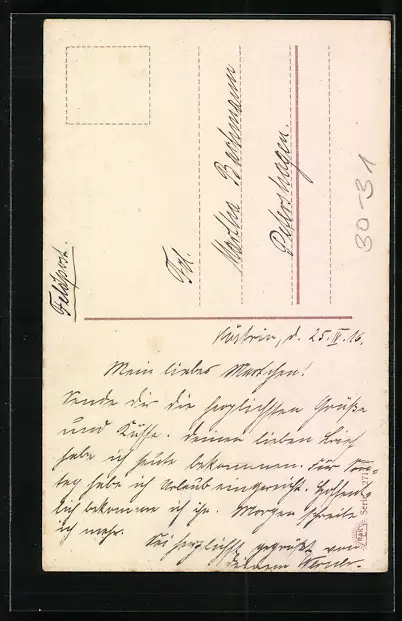 Feldpost.
Frl.
Martha Bachmann
Petershagen.
30-31
Küstrin, d. 25.IV.16.
Mein liebes Martchen!
Sende dir die herzlichsten Grüße
und Küsse. Deinen lieben Brief
habe ich heute bekommen. Für Sonn-
tag habe ich Urlaub eingereicht. Hoffent-
lich bekomme ich ihn. Morgen schreibe
ich mehr.
Sei herzlichst gegrüßt von
deinem
Serie